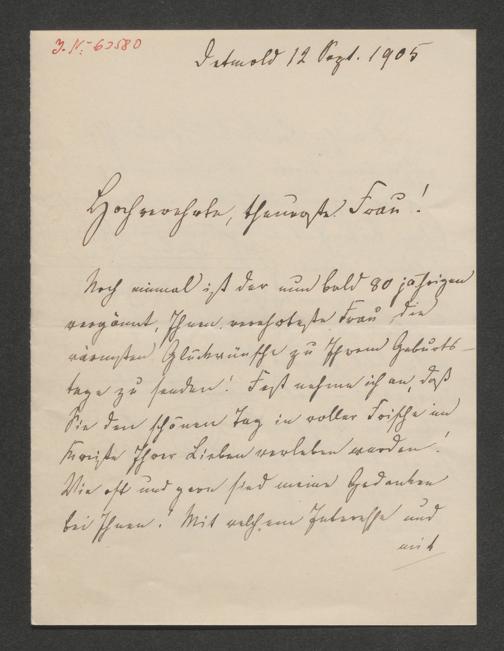 J. N. 63580
Detmold 12 Sept. 1905
Hochverehrte, theuerste Frau!
Noch einmal ist der nun bald 80 jährigen
vergönnt, Ihnen, verehrteste Frau, die
wärmsten Glückwünsche zu Ihrem Geburts-
tage zu senden! Fest nehme ich an, daß
Sie den schönen Tag in voller Frische im
Kreise Ihrer Lieben verleben werden!
Wie oft und gern sind meine Gedanken
bei Ihnen! Mit welchem Interesse und
mit